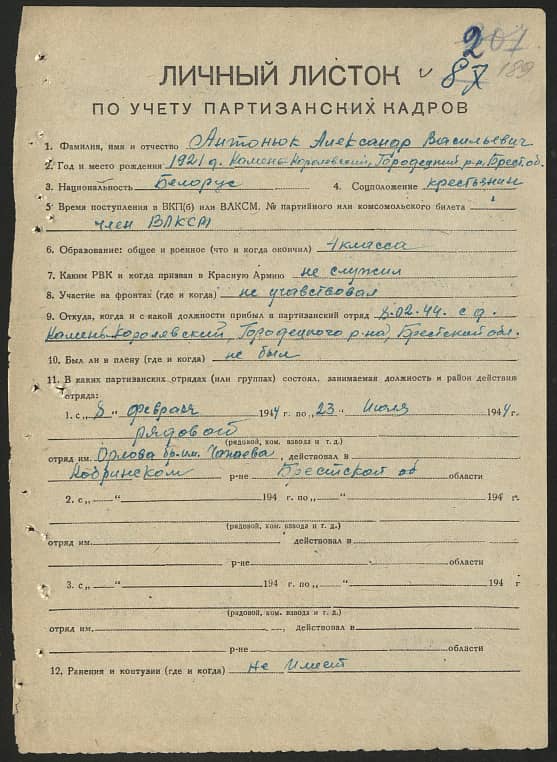 201
2
87 189
ЛИЧНЫЙ ЛИСТОК
ПО УЧЕТУ ПАРТИЗАНСКИХ КАДРОВ
1. Фамилия, имя и отчество Антонюк Александр Васильевич
2. Год и место рождения 1921 д. Камень-Королевский, Городецкий р-н, Брест. об.
3. Национальность Белорус 4. Соцположение крестьянин
5. Время поступления в ВКП(б) или ВЛКСМ, № партийного или комсомольского билета
член ВЛКСМ
6. Образование: общее и военное (что и когда окончил) 4 класса
7. Каким РВК и когда призван в Красную Армию не служил
8. Участие на фронтах (где и когда) не учавствовал
9. Откуда, когда и с какой должности прибыл в партизанский отряд 8.02.44. с д.
Камень-Королевский, Городецкого р-на, Брестской обл.
10. Был ли в плену (где и когда) не был
11. В каких партизанских отрядах (или группах) состоял, занимаемая должность и район действия
отряда:
1. с „8" февраля 1944 г. по „23" июля 1944 г.
рядовой
(рядовой, ком. взвода и т. д.)
отряд им. Орлова бр. им. Чапаева, действовал в
Кобринском р-не Брестской об области
2. с „ — " 194 г. по „ — " 194 г.
(рядовой, ком. взвода и т. д.)
отряд им. действовал в
р-не области
3. с „ — " 194 г. по „ — " 194 г
(рядовой, ком. взвода и т. д.)
отряд им. , действовал в
р-не области
12. Ранения и контузии (где и когда) не имеет